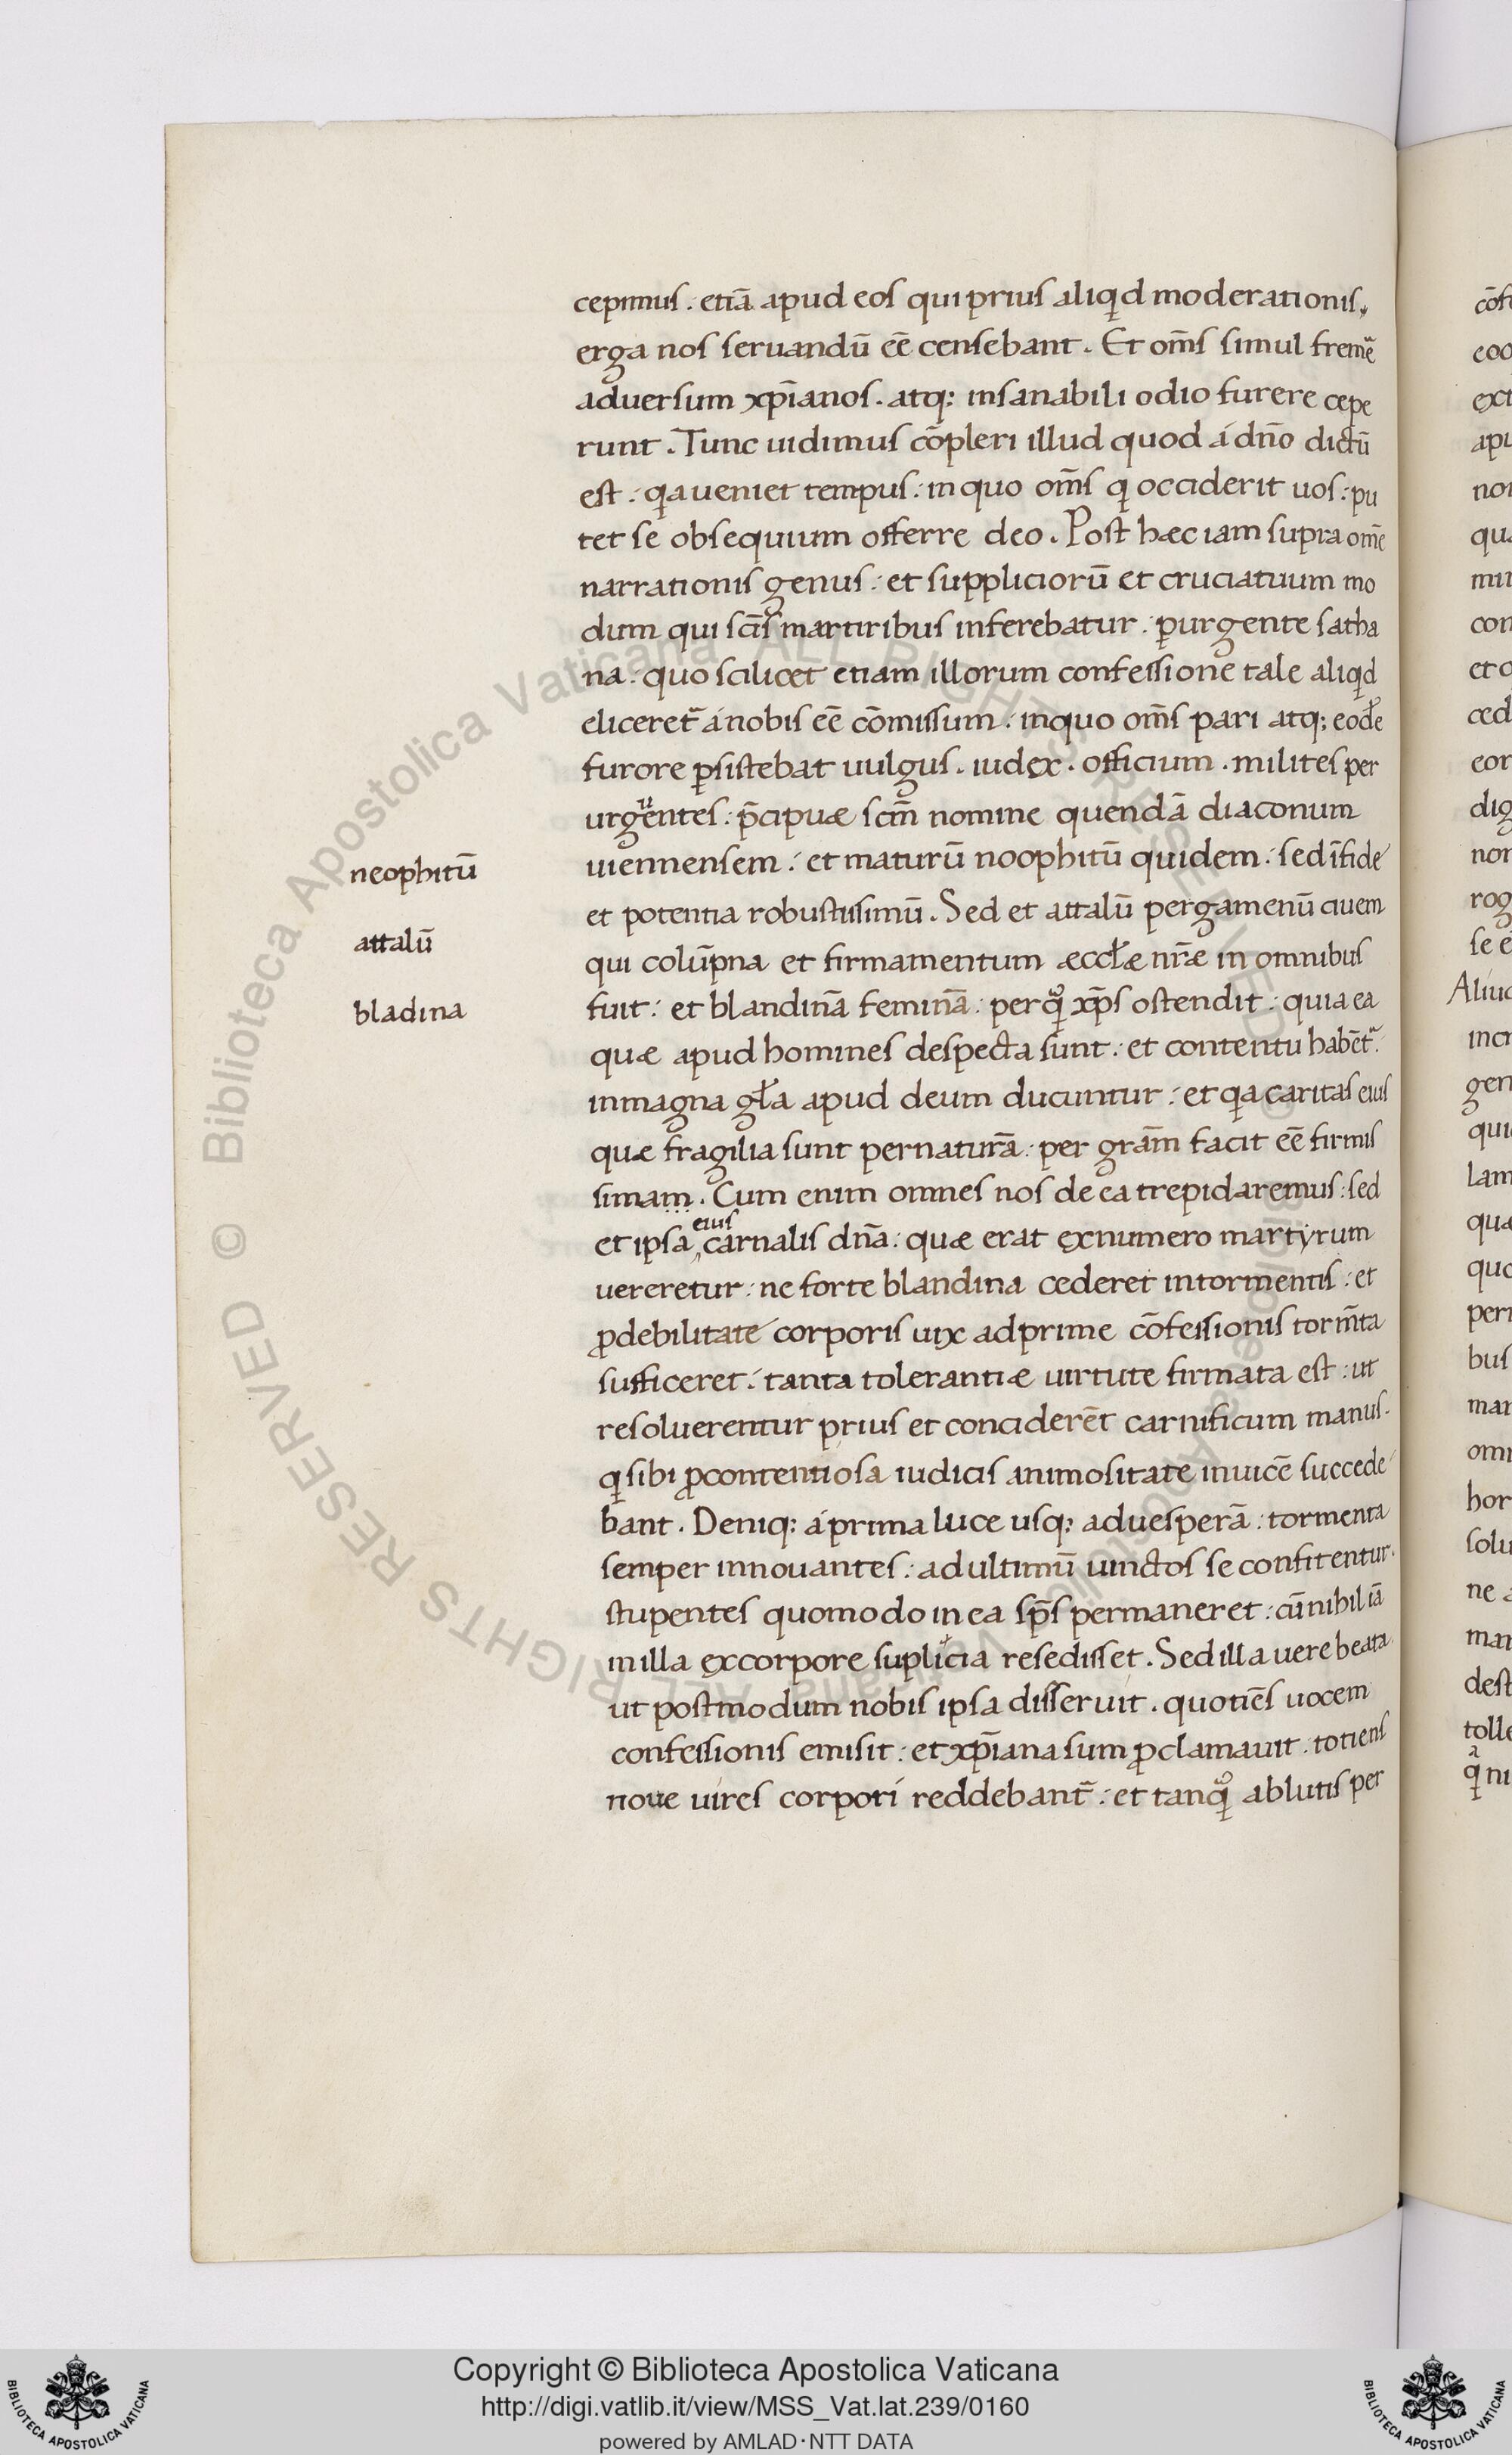 cepimus : etiā apud eos qui prius aliqd moderationis
erga nos seruandū eē censebant . Et om̄s simul freme͂
aduersum xp̄ianos . atq; insanabili odio furere cepe
runt . Tunc uidimus cōpleri illud quod á dn̄o dictū
est : qa ueniet tempus : in quo om̄s q occiderit uos : pu
tet se obsequium offerre deo . Post hæc iam supra om̄e
narrationis genus : et suppliciorū et cruciatuum mo
dum qui sc̄is martiribus inferebatur : ꝑurgente satha
na : quo scilicet etiam illorum confessione tale aliqd
eliceret᷑ á nobis eē cōmissum : inquo om̄s pari atq; eodē
furore ꝑsistebat uulgus . iudex . officium . milites per
urgentes : p̄cipuæ scm̄ nomine quendā diaconum
uiennensem : et maturū noophitū quidem : sed ī fide
et potentia robustissimū . Sed et attalū pergamenū ciuem
qui colūpna et firmamentum æccłæ nr̄æ in omnibus
fuit : et blandinā feminā : per q̊ xp̄s ostendit : quia ea
quæ apud homines despecta sunt : et contentu habēt᷑ :
in magna gła apud deum ducuntur : et qa caritas eius
quæ fragilia sunt per naturā : per grām facit eē firmis
simam . Cum enim omnes nos de ea trepidaremus : sed
eius
et ipsa carnalis dn̄a : quæ erat ex numero martyrum
uereretur : ne forte blandina cederet in tormentis : et
ꝓ debilitate corporis uix ad prime cōfessionis torm̄ta
sufficeret : tanta tolerantiæ uirtute firmata est : ut
resoluerentur prius et conciderēt carnificum manus .
q sibi ꝓ contentiosa iudicis animositate inuicē succede
bant . Deniq; á prima luce usq; ad uesperā : tormenta
semper innouantes : ad ultimū uinctos se confitentur .
stupentes quomodo in ea sp̄s permaneret : cū nihil iā
in illa ex corpore suplicia resedisset . Sed illa uere beata
ut postmodum nobis ipsa disseruit . quotiēs uocem
confessionis emisit : et xp̄iana sum ꝓclamauit . totiens
noue uires corpori reddebant᷑ : et tanq̊ ablutis per
neophitū
attalū
bladina
Copyright © Biblioteca Apostolica Vaticana
http://digi.vatlib.it/view/MSS_Vat.lat.239/0160
powered by AMLAD·NTT DATA